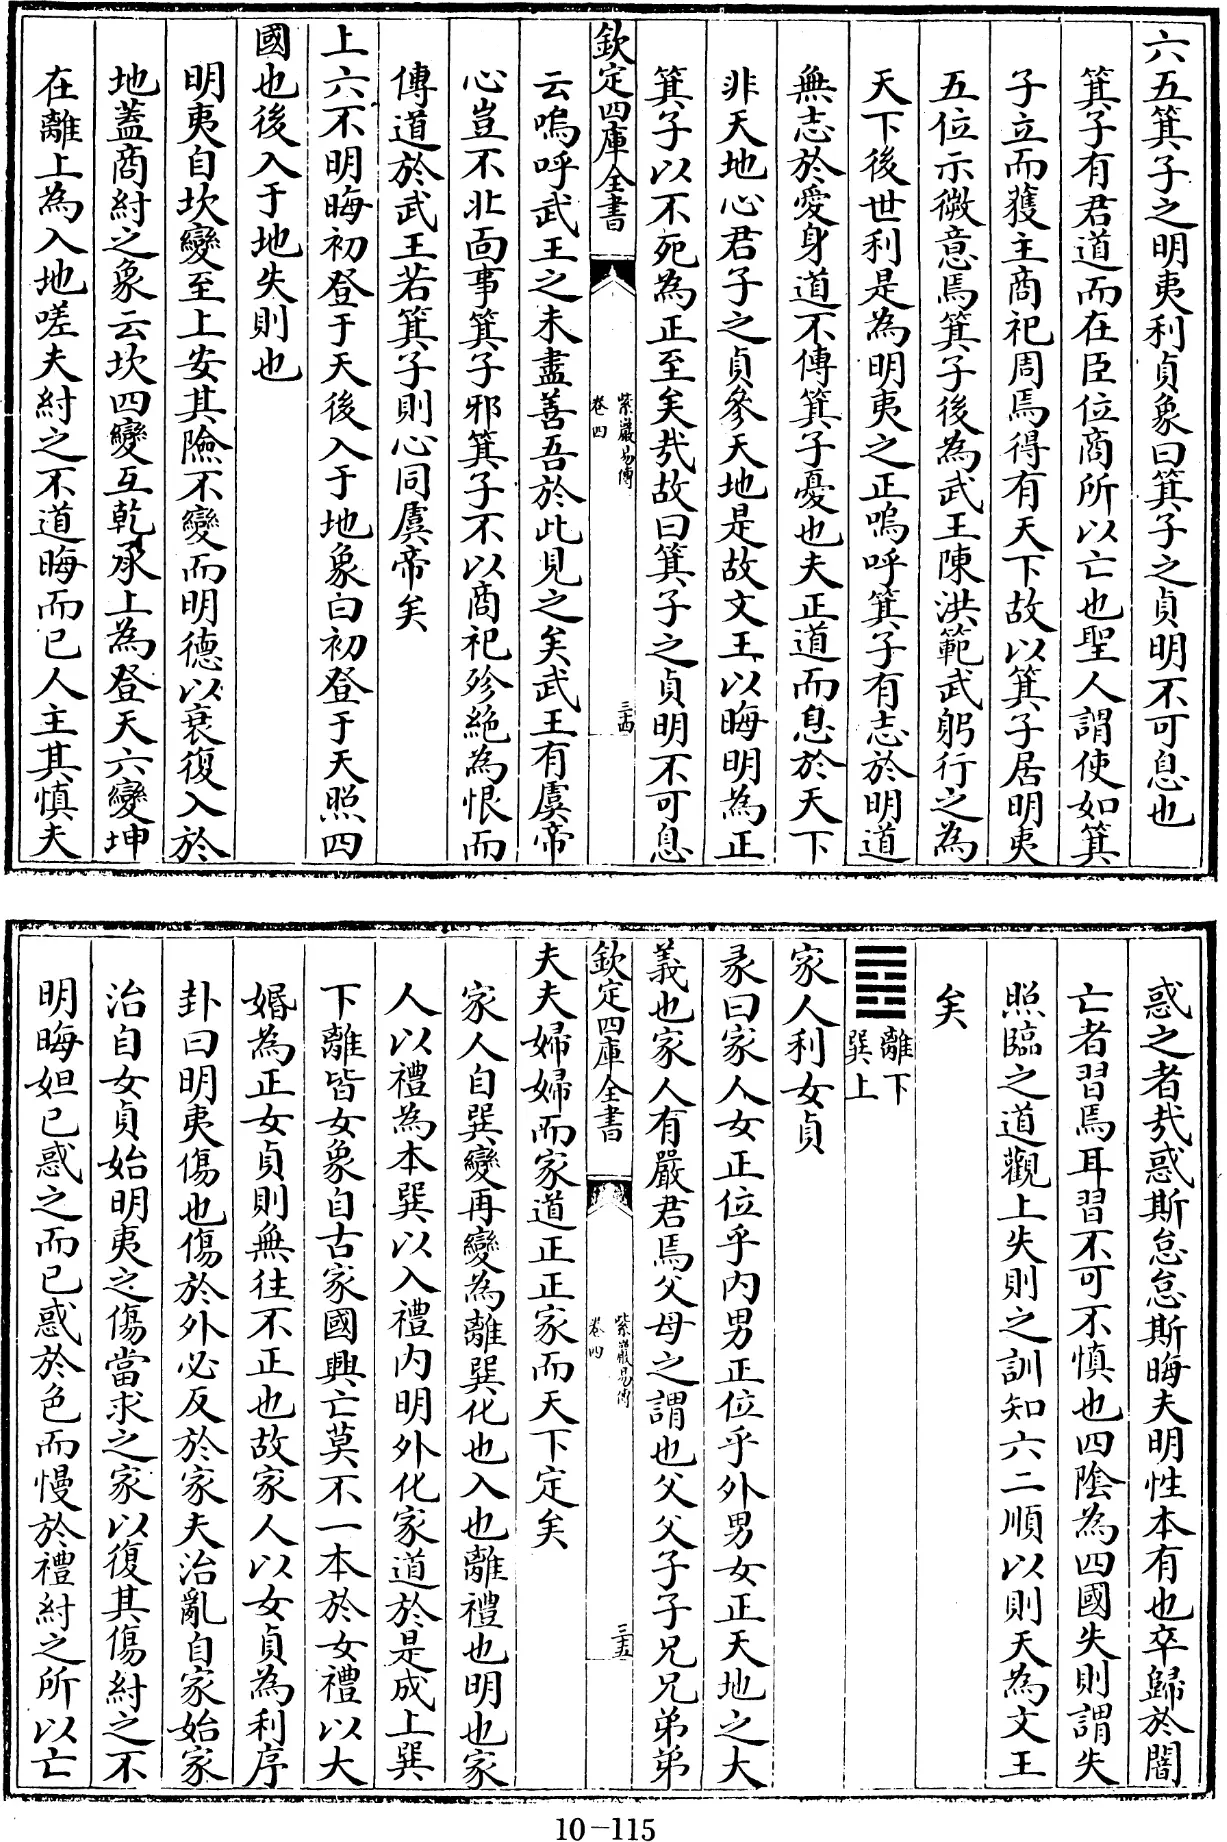 六五箕子之明夷利貞象曰箕子之貞明不可息也
箕子有君道而在臣位商所以亡也聖人謂使如箕
子立而獲主商祀周焉得有天下故以箕子居明夷
五位示微意焉箕子後為武王陳洪範武躬行之為
天下後世利是為明夷之正嗚呼箕子有志於明道
無志於愛身道不傳箕子憂也夫正道而息於天下
非天地心君子之貞參天地是故文王以晦明為正
箕子以不死為正至矣哉故曰箕子之貞明不可息
欽定四庫全書
紫巖易傳
卷四
三四
云嗚呼武王之未盡善吾於此見之矣武王有虞帝
心豈不北面事箕子邪箕子不以商祀殄絶為恨而
傳道於武王若箕子則心同虞帝矣
上六不明晦初登于天後入于地象曰初登于天照四
國也後入于地失則也
明夷自坎變至上安其險不變而明德以衰復入於
地蓋商紂之象云坎四變互乾承上為登天六變坤
在離上為入地嗟夫紂之不道晦而已人主其慎夫
惑之者哉惑斯怠怠斯晦夫明性本有也卒歸於闇
亡者習焉耳習不可不慎也四陰為四國失則謂失
照臨之道觀上失則之訓知六二順以則天為文王
矣
離下
巽上
家人利女貞
彖曰家人女正位乎内男正位乎外男女正天地之大
義也家人有嚴君焉父母之謂也父父子子兄兄弟弟
欽定四庫全書
紫巖易傳
卷四
三五
夫夫婦婦而家道正正家而天下定矣
家人自巽變再變為離巽化也入也離禮也明也家
人以禮為本巽以入禮内明外化家道於是成上巽
下離皆女象自古家國興亡莫不一本於女禮以大
婚為正女貞則無往不正也故家人以女貞為利序
卦曰明夷傷也傷於外必反於家夫治亂自家始家
治自女貞始明夷之傷當求之家以復其傷紂之不
明晦妲已惑之而已惑於色而慢於禮紂之所以亡
10-115